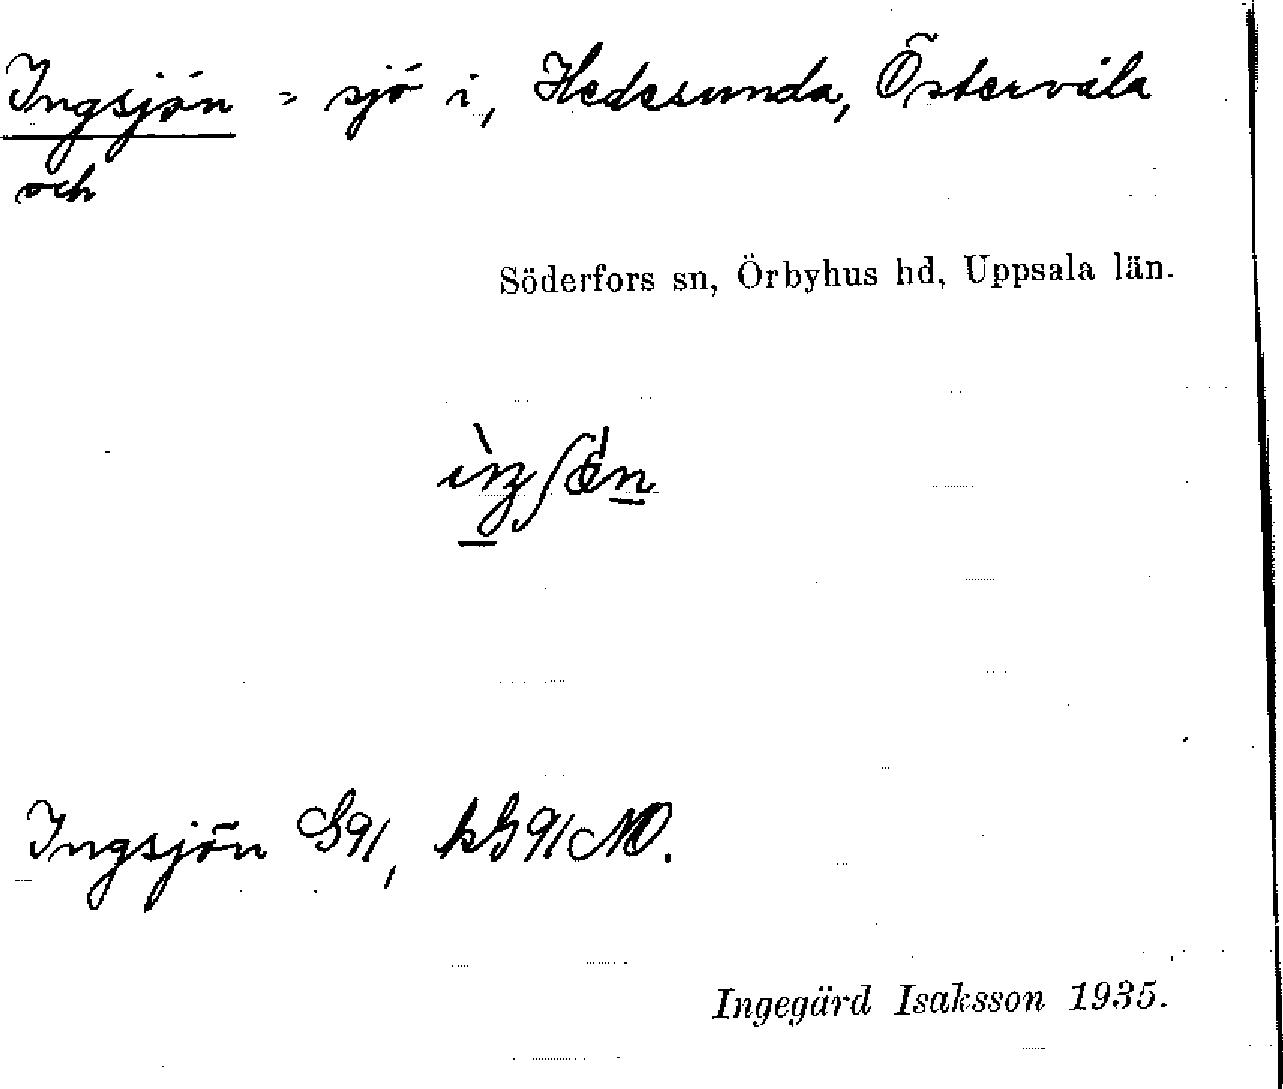 Ingsjön = sjö i, Hedesunda, Östervåla
och
Söderfors sn, Örbyhus hd, Uppsala län.
Ingsjön G91, kG91NO.
Ingegärd Isaksson 1935.